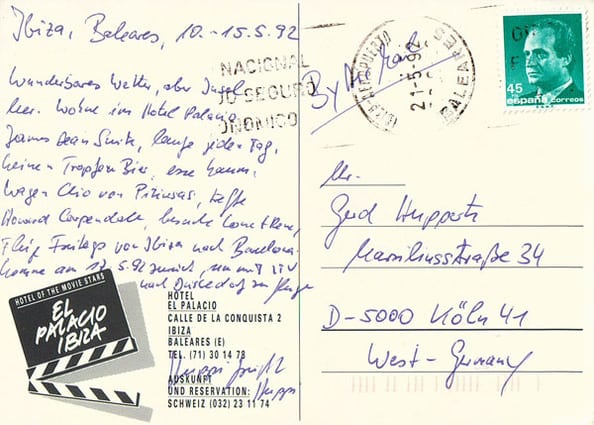 Ibiza, Baleares, 10.-15.5.92
Wunderbares Wetter, aber Insel
leer. Wohne im Hotel Palacio
James Dean Suite, laufe jeden Tag,
keinen Tropfen Bier, esse kaum.
Wagen Clio von Pitiusas, treffe
Howard Carpendale, besuche
Flug Freitags von Ibiza nach Barcelona
komme am 17.5.92 zurück, um mit LTU
nach Düsseldorf zu fliegen
HOTEL OF THE MOVIE STARS
EL
PALACIO
IBIZA
HOTEL
EL PALACIO
CALLE DE LA CONQUISTA 2
IBIZA
BALEARES (E)
TEL. (71) 30 14 78
AUSKUNFT
UND RESERVATION:
SCHWEIZ (032) 23 11 74
Huppi grüßt
Huppi
NACIONAL
SEGURO
By Air Mail
AEROPUERTO
BALEARES
21-5-92
45
PTA
españa correos
Hr.
Gerd Huppertz
Marsiliusstraße 34
D-5000 Köln 41
West-Germany